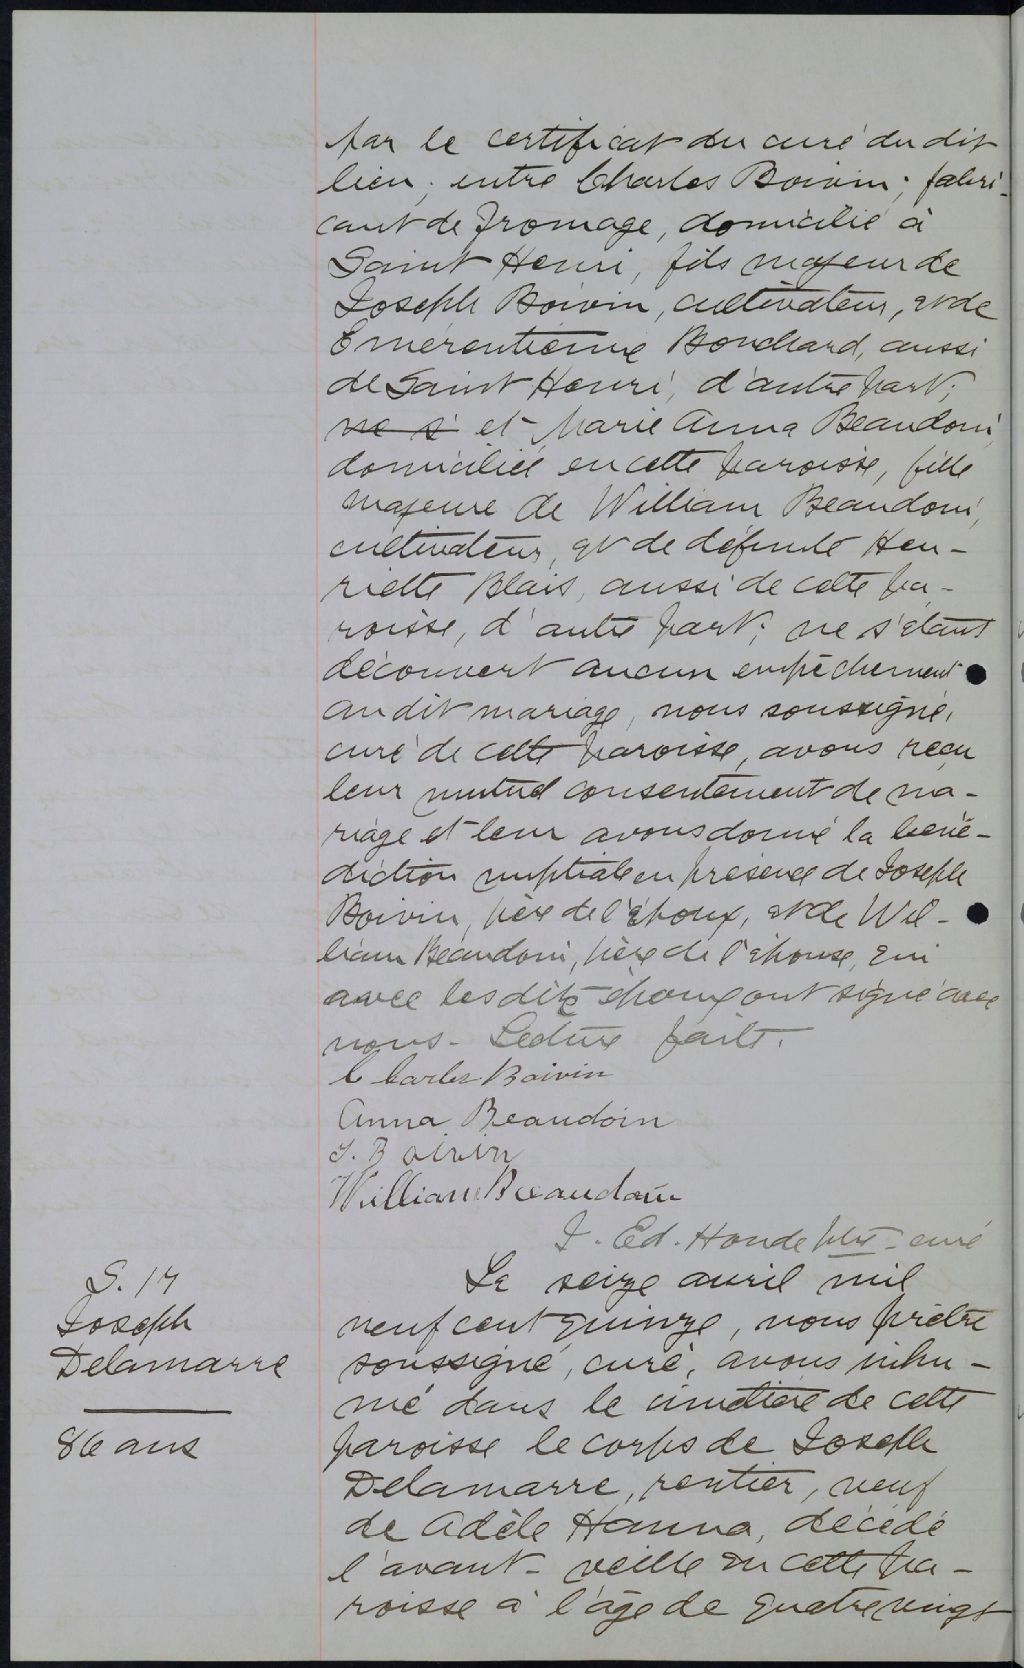 par le certificat du curé du dit
lieu; entre Charles Boivin, fabri-
cant de fromage, domicilié à
Saint Henri, fils majeur de
Joseph Boivin, cultivateur, et de
Emérentienne Bouchard, aussi
de Saint Henri, d'autre part;
ne s' et Marie Anna Beaudoin,
domiciliée en cette paroisse, fille
majeure de William Beaudoin,
cultivateur, et de défunte Hen-
riette Blais, aussi de cette pa-
roisse, d'autre part; ne s'étant
découvert aucun empêchement
au dit mariage, nous soussigné,
curé de cette paroisse, avons reçu
leur mutuel consentement de ma-
riage et leur avons donné la béné-
diction nuptiale en présence de Joseph
Boivin, père de l'époux, et de Wil-
liam Beaudoin, père de l'épouse, qui
avec les dits époux ont signé avec
nous. Lecture faite.
Charles Boivin
Anna Beaudoin
J. Boivin
William Beaudoin
J. Ed. Houde ptre - curé
S. 17
Joseph
Delamarre
86 ans
Le seize avril mil
neuf cent quinze, nous prêtre
soussigné, curé, avons inhu-
mé dans le cimetière de cette
paroisse le corps de Joseph
Delamarre, rentier, veuf
de Adèle Hanna, décédé
l'avant-veille en cette pa-
roisse à l'âge de quatre vingt